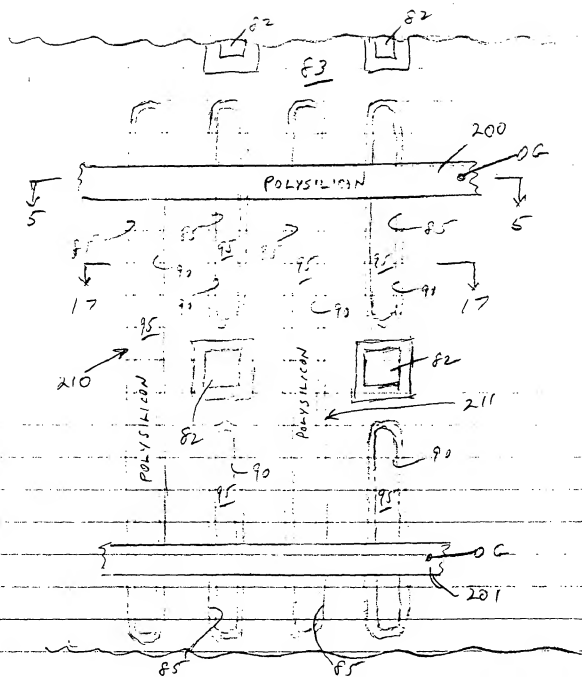 82 82
83
200
OG
POLYSILICON
5 5
85 85 95 85
95 95 95
90 90 90 90
17 17
95
210
82
211
82
POLYSILICON POLYSILICON
90 90
95 95
OG
201
85 85